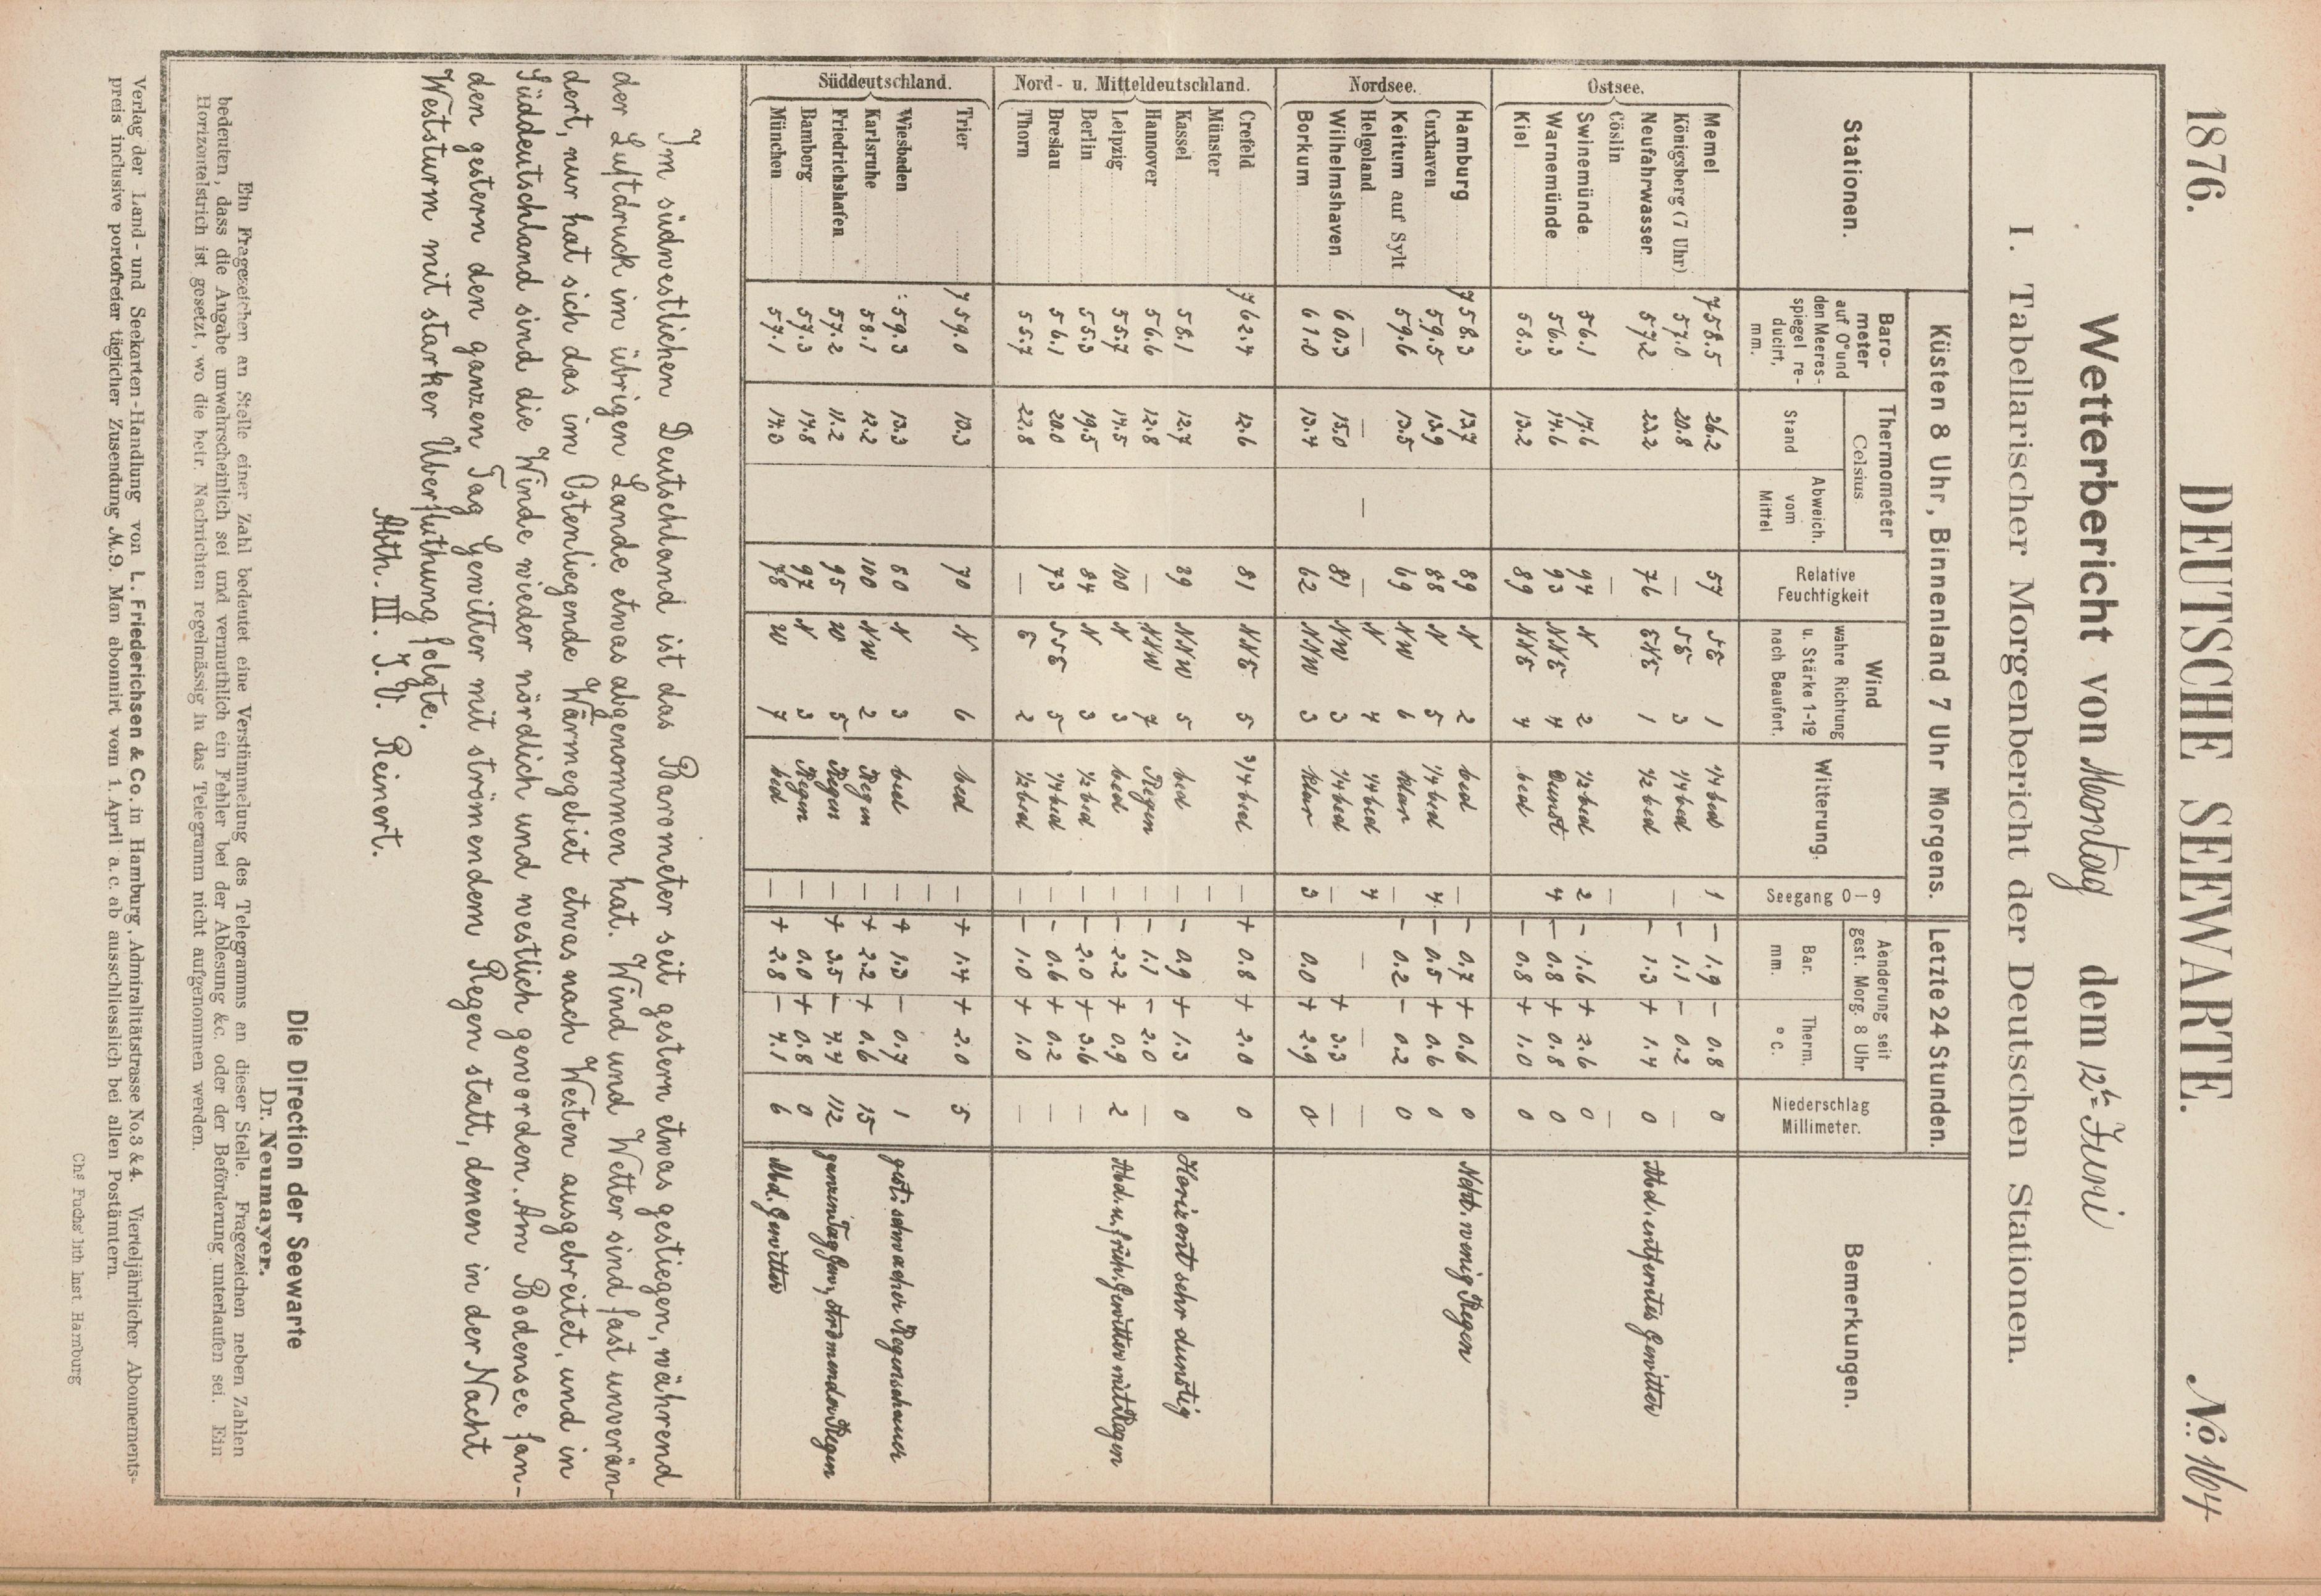 1876. DEUTSCHE SEEWARTE. No. 164
Wetterbericht von Montag dem 12ten Juni
I. Tabellarischer Morgenbericht der Deutschen Stationen.
Küsten 8 Uhr, Binnenland 7 Uhr Morgens. Letzte 24 Stunden.
Stationen. Barometer auf 0° und den Meeresspiegel reducirt, mm. Thermometer Celsius Stand Abweich. vom Mittel Relative Feuchtigkeit Wind wahre Richtung u. Stärke 1-12 nach Beaufort. Witterung. Seegang 0–9 Aenderung seit gest. Morg. 8 Uhr Bar. mm. Therm. °C. Niederschlag Millimeter. Bemerkungen.
Ostsee.
Memel 758.5 26.2 57 SE 1 1/4 bed 1 – 1.9 – 0.8 0
Königsberg (7 Uhr) 57.0 20.8 — SE 3 1/4 bed — – 1.1 – 0.2 —
Neufahrwasser 57.2 23.2 76 ENE 1 1/2 bed – 1.3 + 1.4 0 Abd. entferntes Gewitter
Cöslin — — —
Swinemünde 56.1 17.6 94 N 2 1/2 bed 2 – 1.6 + 2.6 0
Warnemünde 56.3 14.6 93 NNE 4 Dunst 4 – 0.8 + 0.8 0
Kiel 58.3 13.2 89 NNE 4 bed — – 0.8 + 1.0 0
Nordsee.
Hamburg 758.3 13.7 89 N 2 bed — – 0.7 + 0.6 0 Nchts. wenig Regen
Cuxhaven 59.5 13.9 88 N 5 1/4 bed 4 – 0.5 + 0.6 0
Keitum auf Sylt 59.6 13.5 69 NW 6 klar — – 0.2 – 0.2 0
Helgoland — — — — N 4 1/4 bed 4 — — —
Wilhelmshaven 60.3 15.0 81 NW 3 1/4 bed — + 3.3 —
Borkum 61.0 13.4 62 NNW 3 klar 3 0.0 + 2.9 0
Nord- u. Mitteldeutschland.
Crefeld 762.4 12.6 81 NNE 5 3/4 bed — + 0.8 + 2.0 0
Münster —
Kassel 58.1 12.7 29 NNW 5 bed — – 0.9 + 1.3 0 Horizont sehr dunstig
Hannover 56.6 12.8 — NNW 7 Regen — – 1.1 – 2.0 —
Leipzig 55.7 14.5 100 N 3 bed — – 2.2 + 0.9 2 Abd. u. früh. Gewitter mit Regen
Berlin 55.3 19.5 84 N 3 1/2 bed — – 2.0 + 3.6 —
Breslau 56.1 20.0 73 SSE 5 1/4 bed — – 0.6 + 0.2 —
Thorn 55.7 22.8 — E 2 1/2 bed — – 1.0 + 1.0 —
Süddeutschland.
Trier 759.0 10.3 70 N 6 bed — + 1.4 + 2.0 5
—
Wiesbaden 59.3 13.3 80 N 3 bed — + 1.3 – 0.7 1 gest. schwacher Regenschauer
Karlsruhe 58.1 12.2 100 NW 2 Regen — + 2.2 + 0.6 15
Friedrichshafen 57.2 11.2 95 W 5 Regen — + 3.5 – 4.4 112 ganzen Tag Gew., strömender Regen
Bamberg 57.3 14.8 97 N 3 Regen — 0.0 + 0.8 0
München 57.1 14.0 78 W 7 bed — + 2.8 – 4.1 6 Abd. Gewitter
Im südwestlichen Deutschland ist das Barometer seit gestern etwas gestiegen, während
der Luftdruck im übrigen Lande etwas abgenommen hat. Wind und Wetter sind fast unverän-
dert, nur hat sich das im Osten liegende Wärmegebiet etwas nach Westen ausgebreitet, und in
Süddeutschland sind die Winde wieder nördlich und westlich geworden. Am Bodensee fan-
den gestern den ganzen Tag Gewitter mit strömendem Regen statt, denen in der Nacht
Weststurm mit starker Überfluthung folgte.
Abth. III. I.V. Reinert.
Die Direction der Seewarte
Dr. Neumayer.
Ein Fragezeichen an Stelle einer Zahl bedeutet eine Verstümmelung des Telegramms an dieser Stelle. Fragezeichen neben Zahlen
bedeuten, dass die Angabe unwahrscheinlich sei und vermuthlich ein Fehler bei der Ablesung &c. oder der Beförderung unterlaufen sei. Ein
Horizontalstrich ist gesetzt, wo die betr. Nachrichten regelmässig in das Telegramm nicht aufgenommen werden.
Verlag der Land- und Seekarten-Handlung von L. Friederichsen & Co. in Hamburg, Admiralitätstrasse No. 3 & 4. Vierteljährlicher Abonnements-
preis inclusive portofreier täglicher Zusendung M. 9. Man abonnirt vom 1. April a. c. ab ausschliesslich bei allen Postämtern.
Chs Fuchs lith Inst. Hamburg